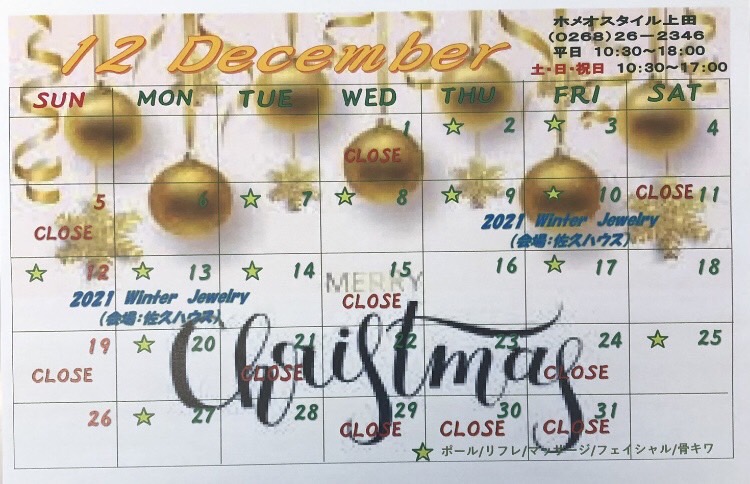 ホメオスタイル上田
(0268)26-2346
平日 10:30~18:00
土・日・祝日 10:30~17:00
12 December
SUN MON TUE WED THU FRI SAT
1 ☆ 2 ☆ 3 4
CLOSE
5 6 ☆ 7 ☆ 8 ☆ 9 ☆ 10 CLOSE 11
CLOSE
2021 Winter Jewelry
(会場:佐久ハウス)
☆ 12 ☆ 13 ☆ 14 15 16 ☆ 17 18
MERRY
CLOSE
2021 Winter Jewelry
(会場:佐久ハウス)
Christmas
19 ☆ 20 21 22 23 24 ☆ 25
CLOSE CLOSE CLOSE
26 ☆ 27 28 29 30 31
CLOSE CLOSE CLOSE
☆ ポール/リフレ/マッサージ/フェイシャル/骨キワ